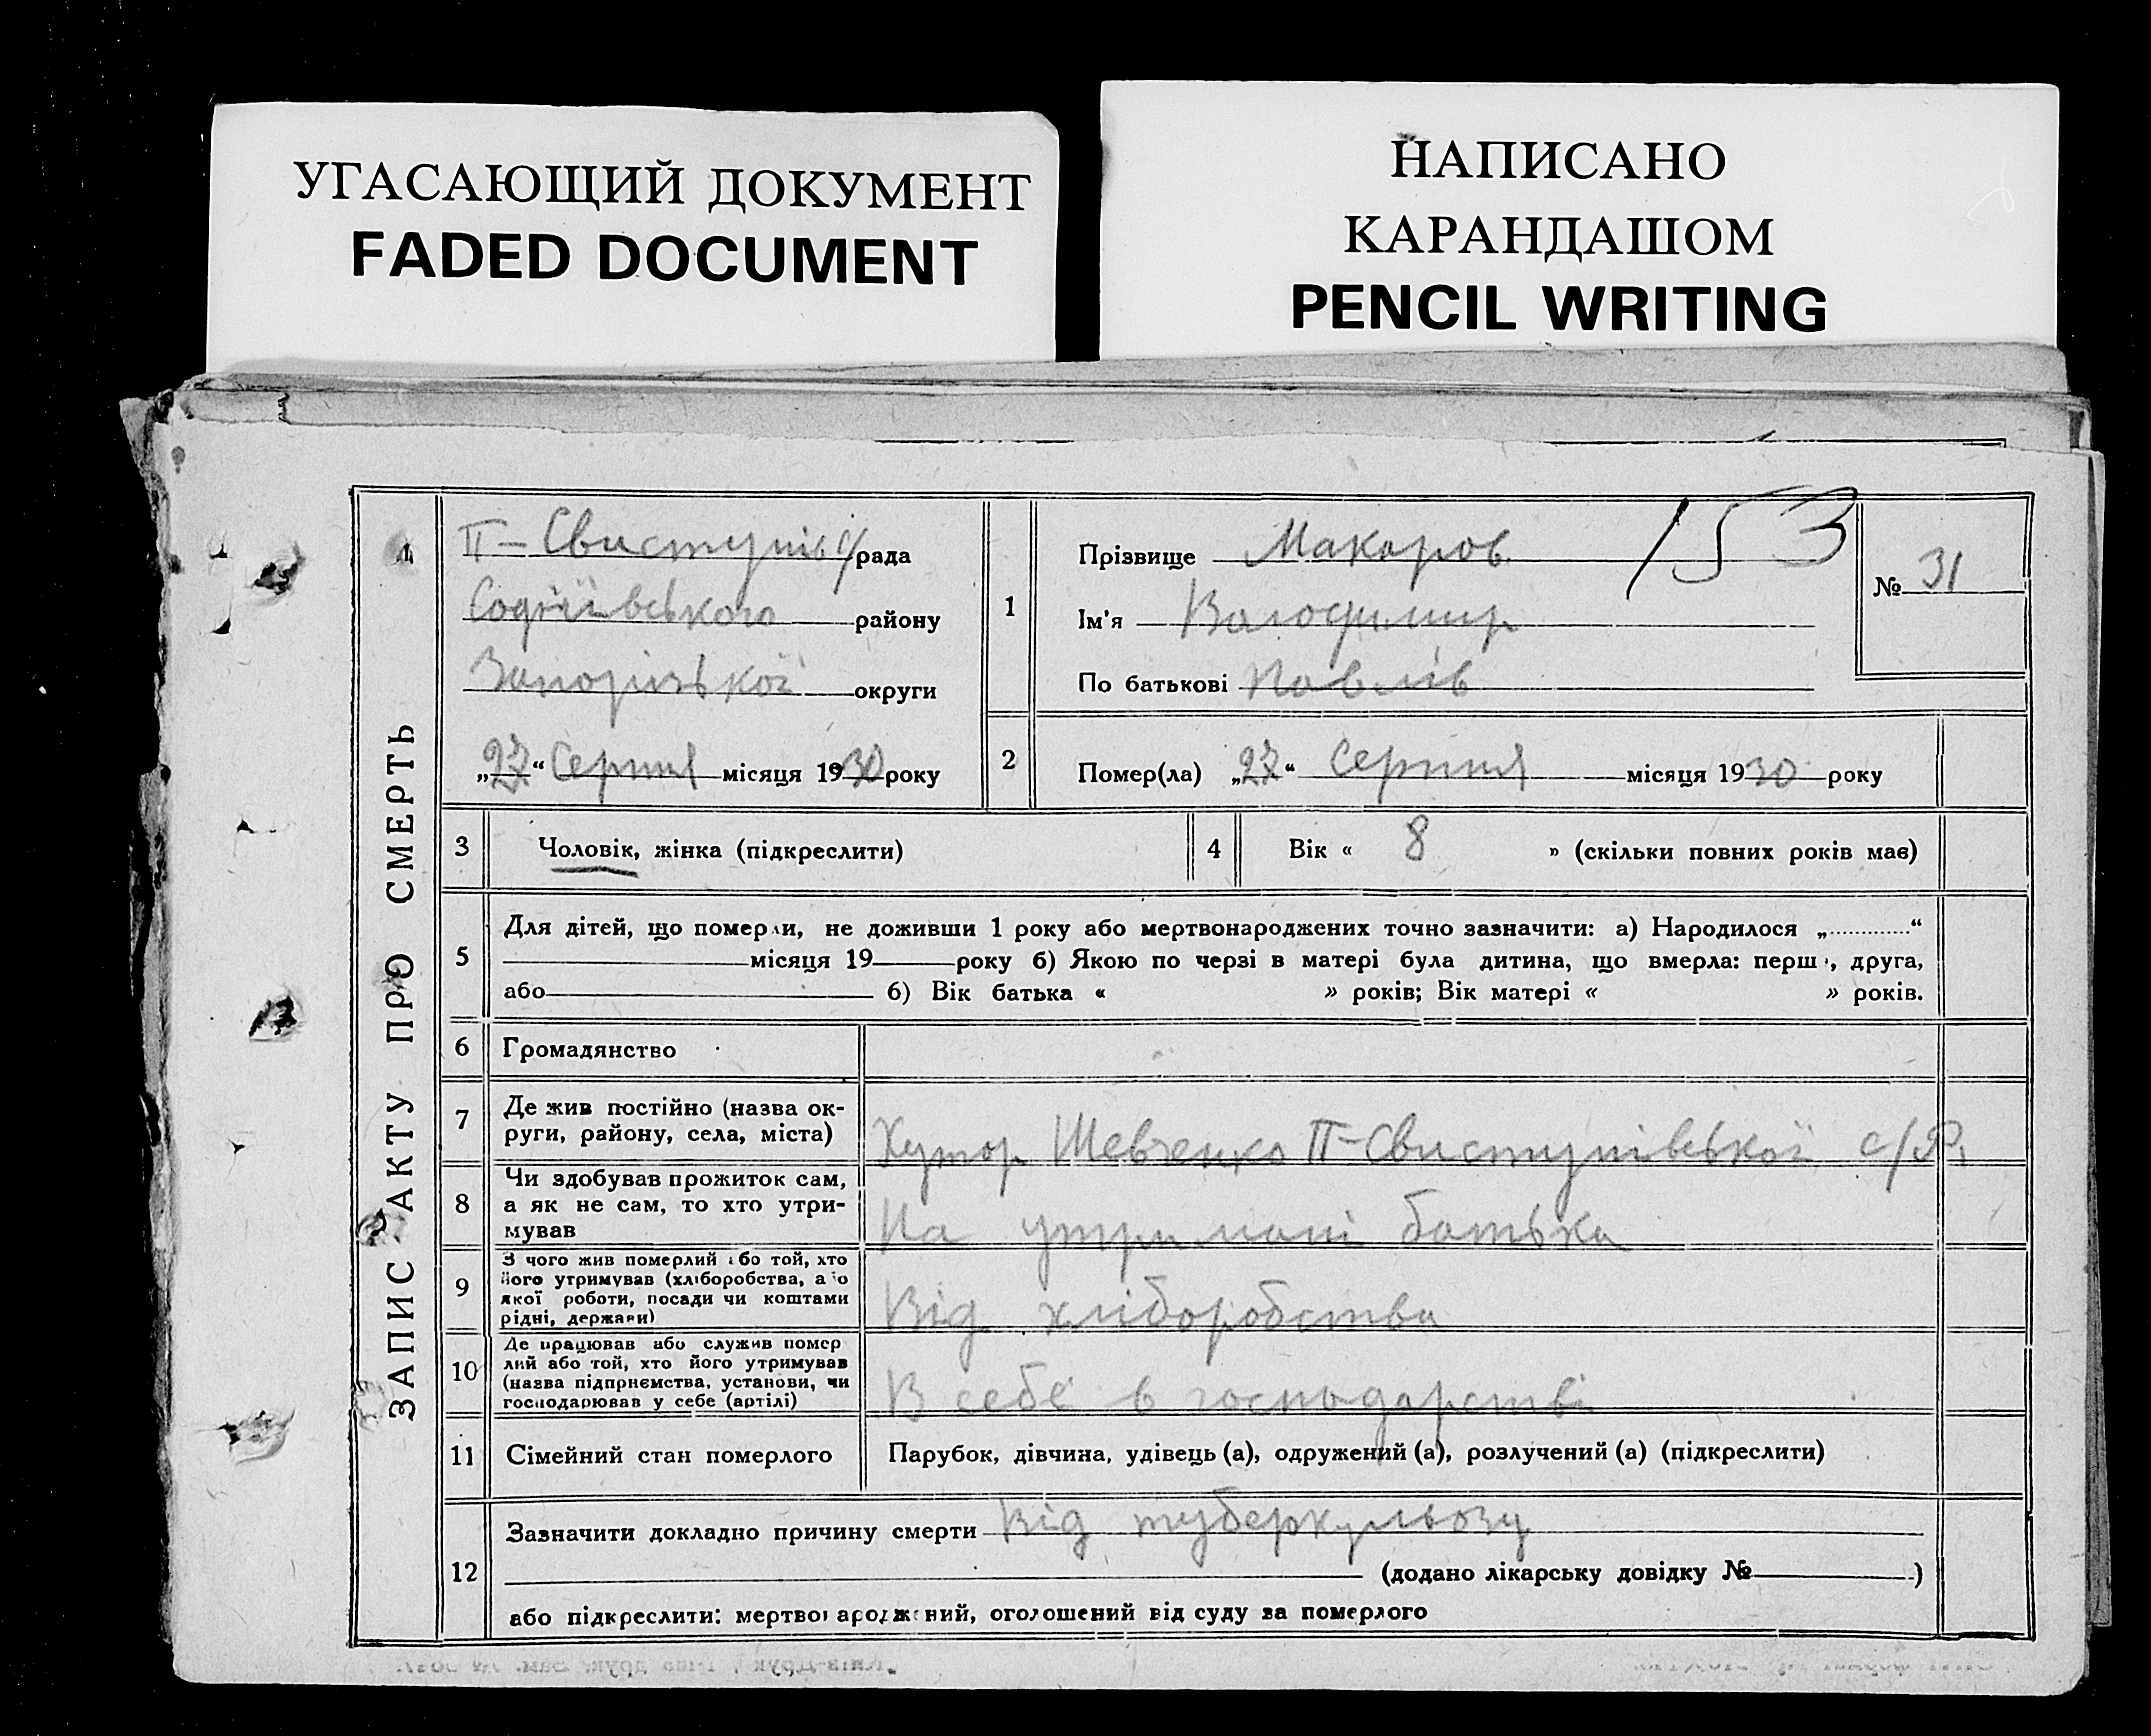 УГАСАЮЩИЙ ДОКУМЕНТ
FADED DOCUMENT
НАПИСАНО
КАРАНДАШОМ
PENCIL WRITING
ЗАПИС АКТУ ПРО СМЕРТЬ
П-Свистунів с/рада
Софіївського району
Запорізької округи
„27“ Серпня місяця 1930 року
153
№ 31
1 Прізвище Макаров
Ім'я Володимир
По батькові Павлів
2 Помер(ла) „27“ Серпня місяця 1930 року
3 Чоловік, жінка (підкреслити)
4 Вік « 8 » (скільки повних років має)
5 Для дітей, що померли, не доживши 1 року або мертвонароджених точно зазначити: а) Народилося „ “
місяця 19 року б) Якою по черзі в матері була дитина, що вмерла: перш , друга,
або б) Вік батька « » років; Вік матері « » років.
6 Громадянство
7 Де жив постійно (назва ок-
руги, району, села, міста)
Хутор Шевченко П-Свистунівської с/Р.
8 Чи здобував прожиток сам,
а як не сам, то хто утри-
мував
На утримані батька
9 З чого жив померлий або той, хто
його утримував (хліборобства, або
якої роботи, посади чи коштами
рідні, держави)
Від хліборобства
10 Де працював або служив помер
лий або той, хто його утримував
(назва підприємства, установи, чи
господарював у себе (артілі)
В себе в господарстві
11 Сімейний стан померлого
Парубок, дівчина, удівець (а), одружений (а), розлучений (а) (підкреслити)
12 Зазначити докладно причину смерти Від туберкульозу
(додано лікарську довідку № )
або підкреслити: мертвонароджений, оголошений від суду за померлого